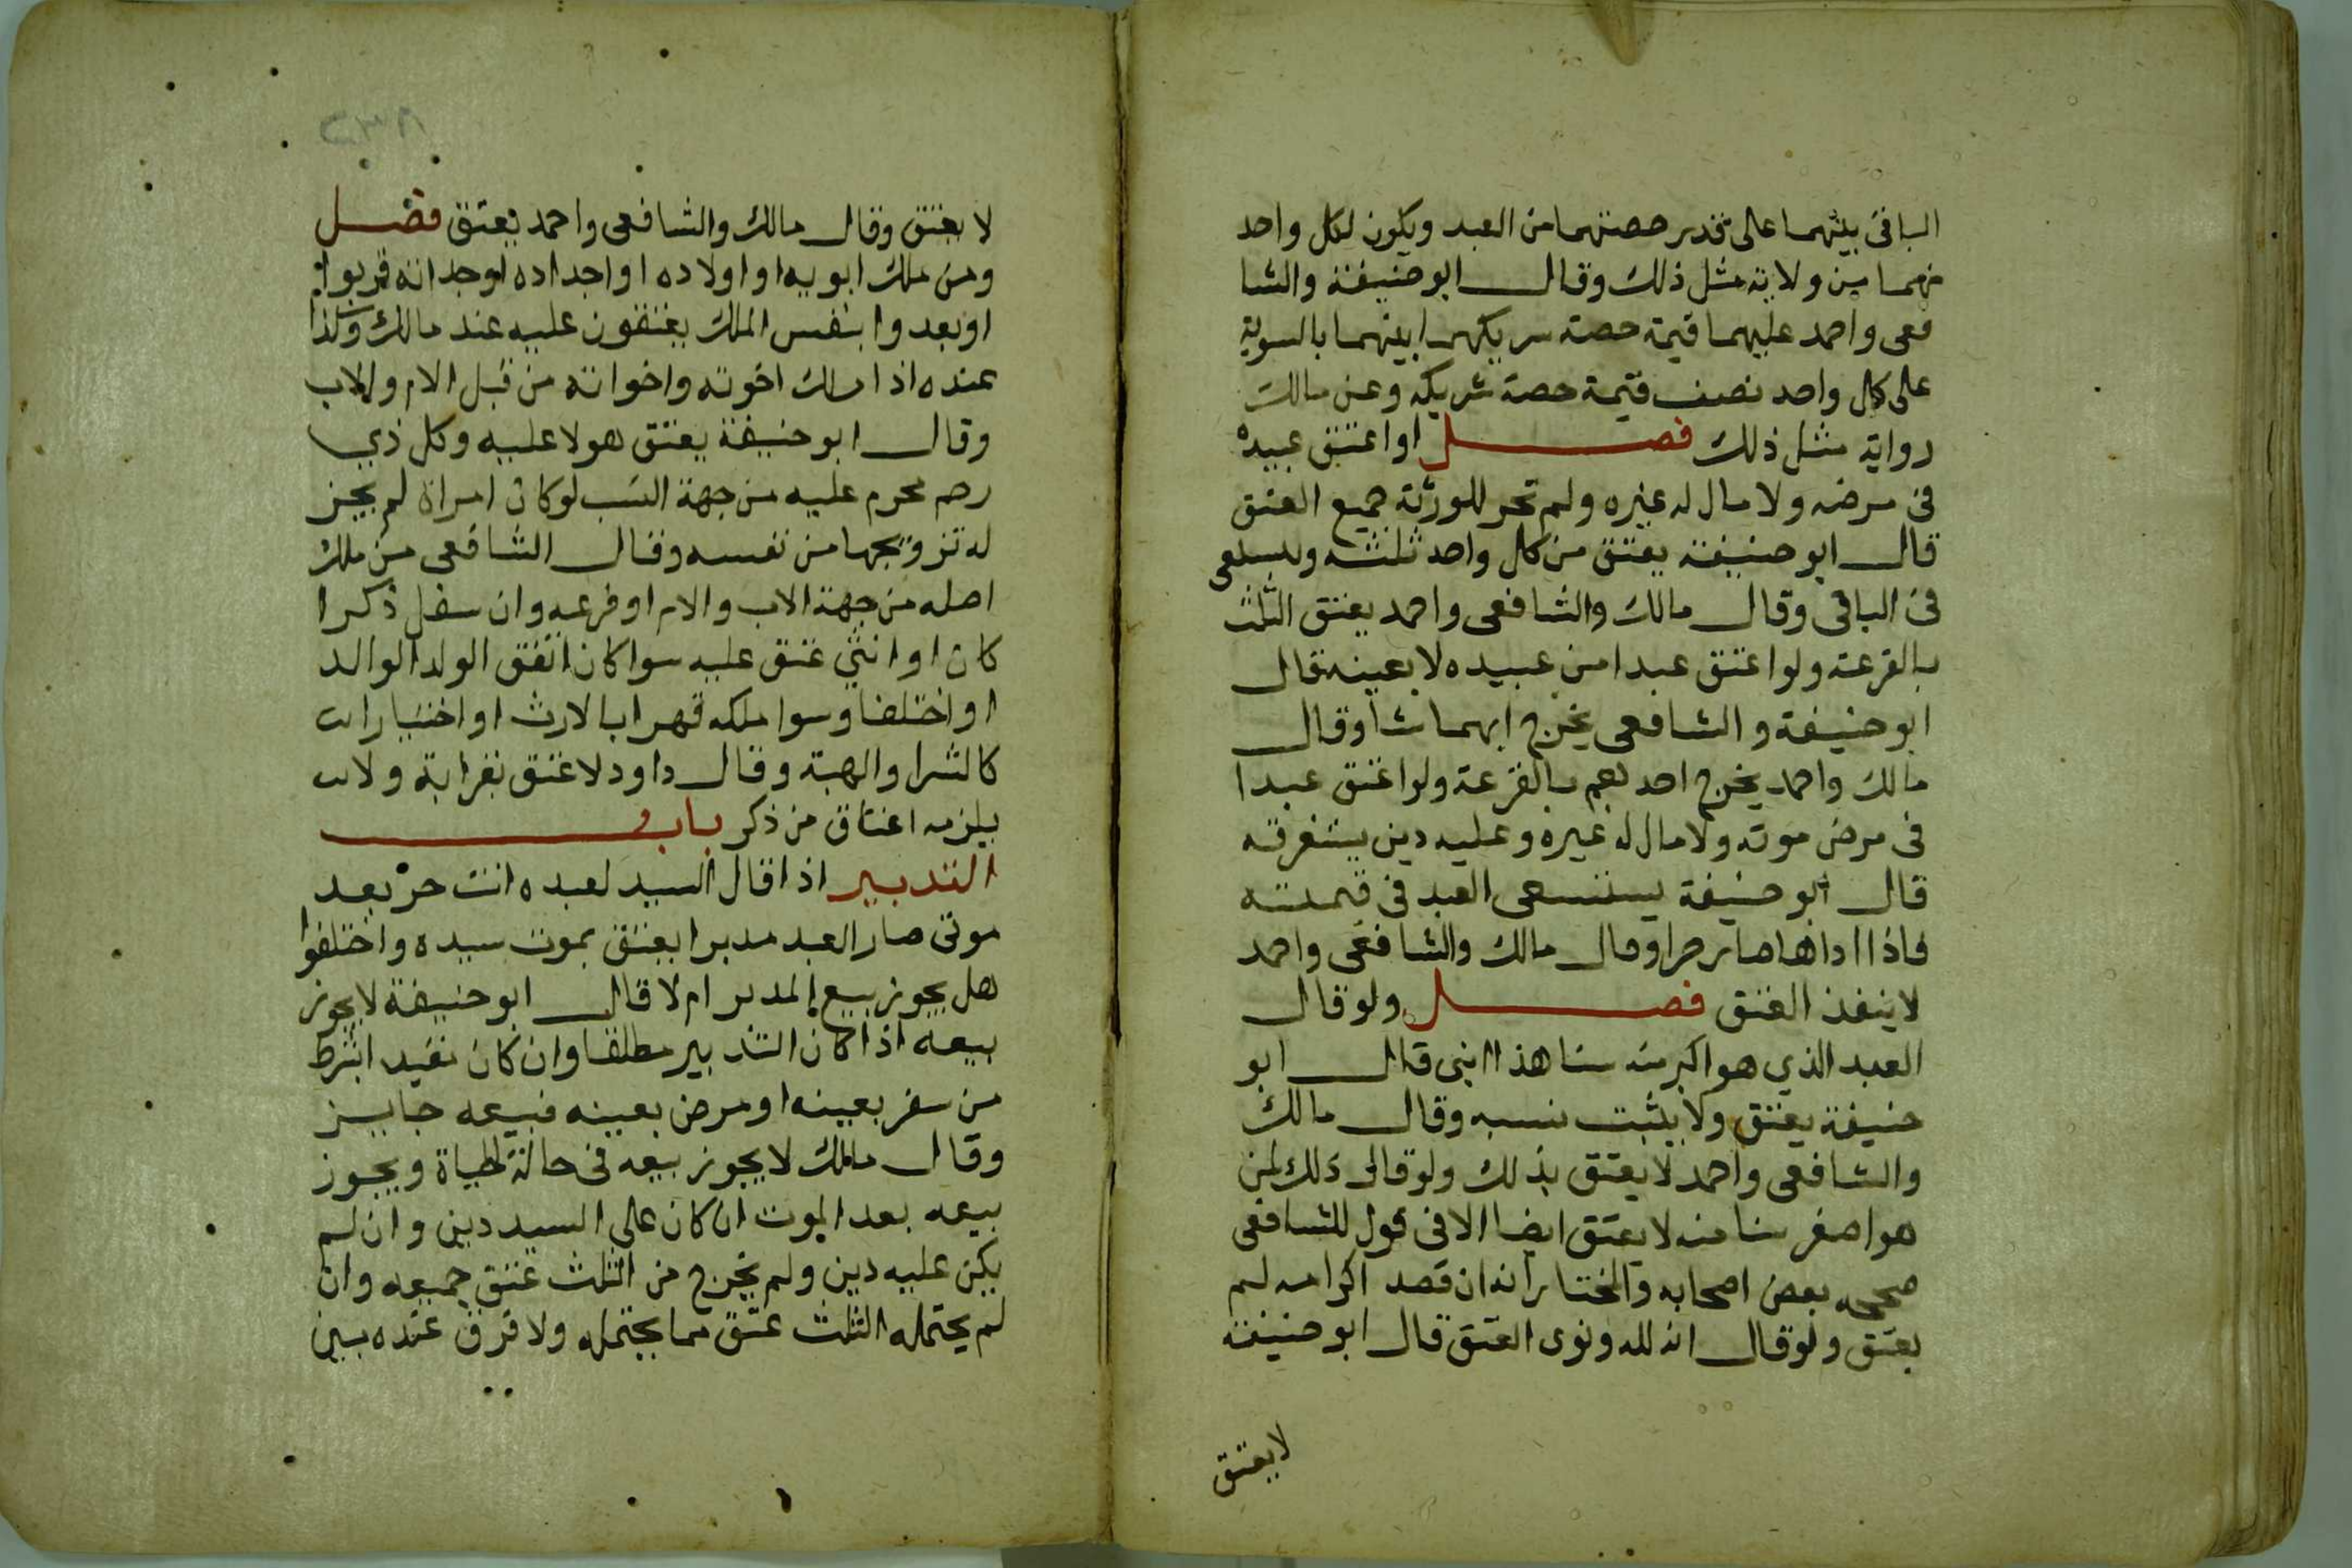 الباقى بينهما على قدر حصتهما من العبد ويكون لكل واحد
منهما من ولايه مثل ذلك وقال ابو حنيفة والشا
فعى واحمد عليهما قيمة حصة شريكهما بينهما بالسوية
على كل واحد نصف قيمة حصة شريكه وعن مالك
رواية مثل ذلك فصل اوا عتق عبيده
فى مرضه ولا مال له غيره ولم تجز الورثة جميع العتق
قال ابو حنيفة يعتق من كل واحد ثلثه ويستسعى
فى الباقى وقال مالك والشافعى واحمد يعتق الثلث
بالقرعة ولو اعتق عبدا من عبيده لا بعينه قال
ابو حنيفة والشافعى يخرج ايهما شا وقال
مالك واحمد يخرج احدهم بالقرعة ولو اعتق عبدا
فى مرض موته ولا مال له غيره وعليه دين يستغرقه
قال ابو حنيفة يستسعى العبد فى قيمته
فاذا اداها صار حرا وقال مالك والشافعى واحمد
لا ينفذ العتق فصل ولو قال
العبد الذي هو اكبر منه سنا هذا ابنى قال ابو
حنيفة يعتق ولا يثبت نسبه وقال مالك
والشافعى واحمد لا يعتق بذلك ولو قال ذلك لمن
هو اصغر سنا منه لا يعتق ايضا الا فى قول للشافعى
صححه بعض اصحابه والمختار انه ان قصد اكرامه لم
يعتق ولو قال انه لله ونوى العتق قال ابو حنيفة
لا يعتق
لا يعتق وقال مالك والشافعى واحمد يعتق فصل
ومن ملك ابويه او اولاده او اجداده او جداته قربوا
او بعدوا بنفس الملك يعتقون عليه عند مالك وكذا
عنده اذا ملك اخوته واخواته من قبل الام والاب
وقال ابو حنيفة يعتق هولا عليه وكل ذي
رحم محرم عليه من جهة النسب لو كان امراة لم يجز
له تزويجها من نفسه وقال الشافعى من ملك
اصله من جهة الاب والام او فرعه وان سفل ذكرا
كان او انثي عتق عليه سوا كان اتفق الولد الوالد
او اختلفا وسوا ملكه قهرا بالارث او اختيارا
كالشرا والهبة وقال داود لا عتق بقرابة ولا
يلزمه اعتاق من ذكر باب
التدبير اذا قال السيد لعبده انت حر بعد
موتى صار العبد مدبرا يعتق بموت سيده واختلفوا
هل يجوز بيع المدبر ام لا قال ابو حنيفة لا يجوز
بيعه اذا كان التدبير مطلقا وان كان مقيد ابشرط
من سفر بعينه او مرض بعينه فبيعه جايز
وقال مالك لا يجوز بيعه فى حالة الحياة ويجوز
بيعه بعد الموت ان كان على السيد دين وان لم
يكن عليه دين ولم يخرج من الثلث عتق جميعه وان
لم يحتمله الثلث عتق مما يحتمله ولا فرق عنده بين